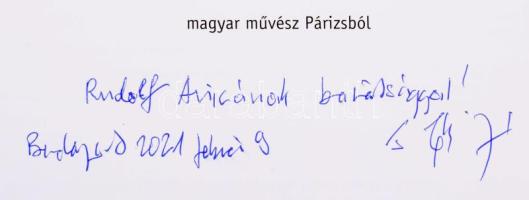 magyar művész Párizsból
Rudolf Anicának barátsággal!
Budapest 2021 február 9